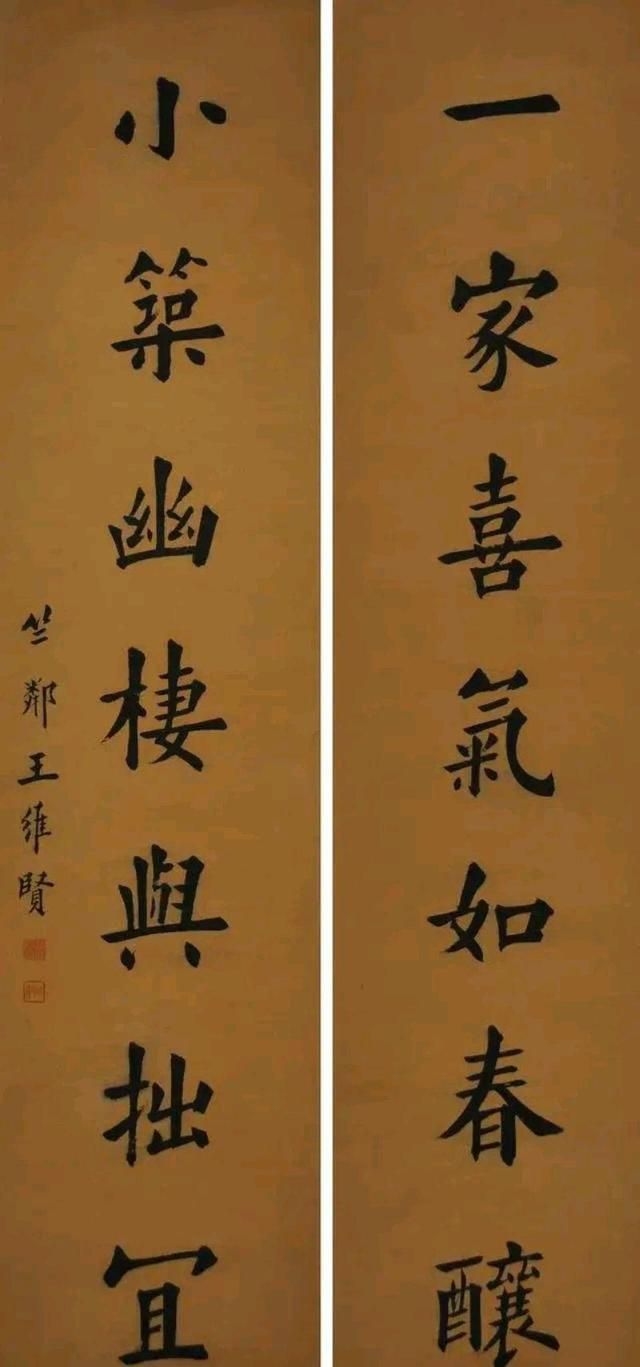 一家喜氣如春釀
小築幽棲與拙宜
竺鄰王維賢